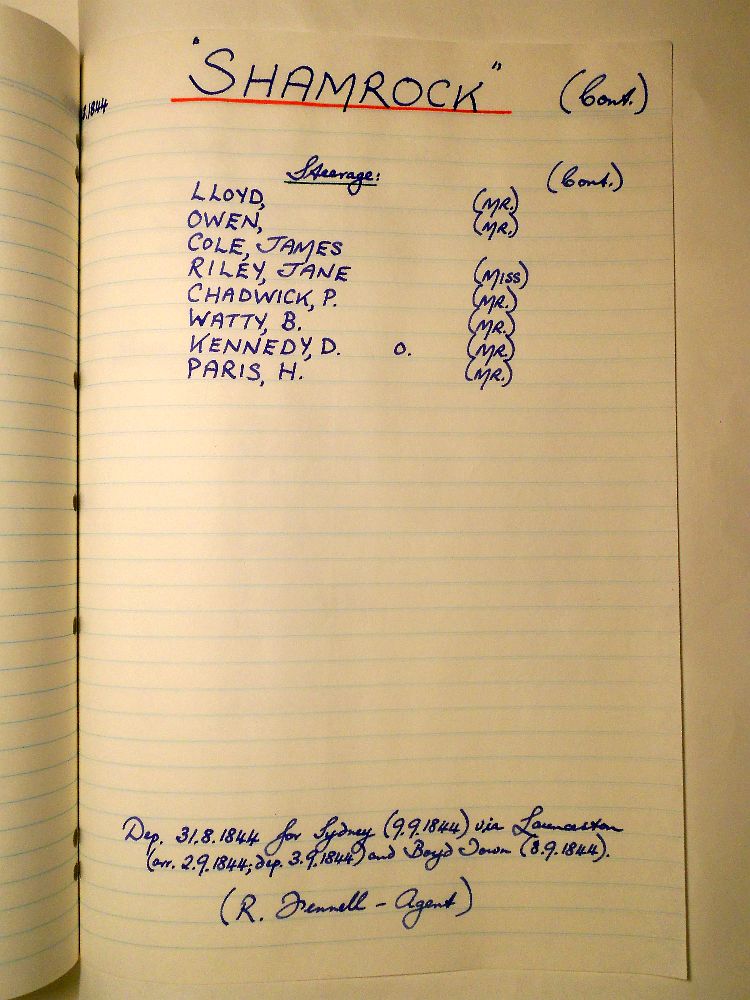 "SHAMROCK" (Cont.)
.1844
Steerage: (Cont.)
LLOYD, (MR.)
OWEN, (MR.)
COLE, JAMES
RILEY, JANE (MISS)
CHADWICK, P. (MR.)
WATTY, B. (MR.)
KENNEDY, D. O. (MR.)
PARIS, H. (MR.)
Dep. 31.8.1844 for Sydney (9.9.1844) via Launceston
(arr. 2.9.1844, dep. 3.9.1844) and Boyd Town (8.9.1844).
(R. Fennell - Agent)